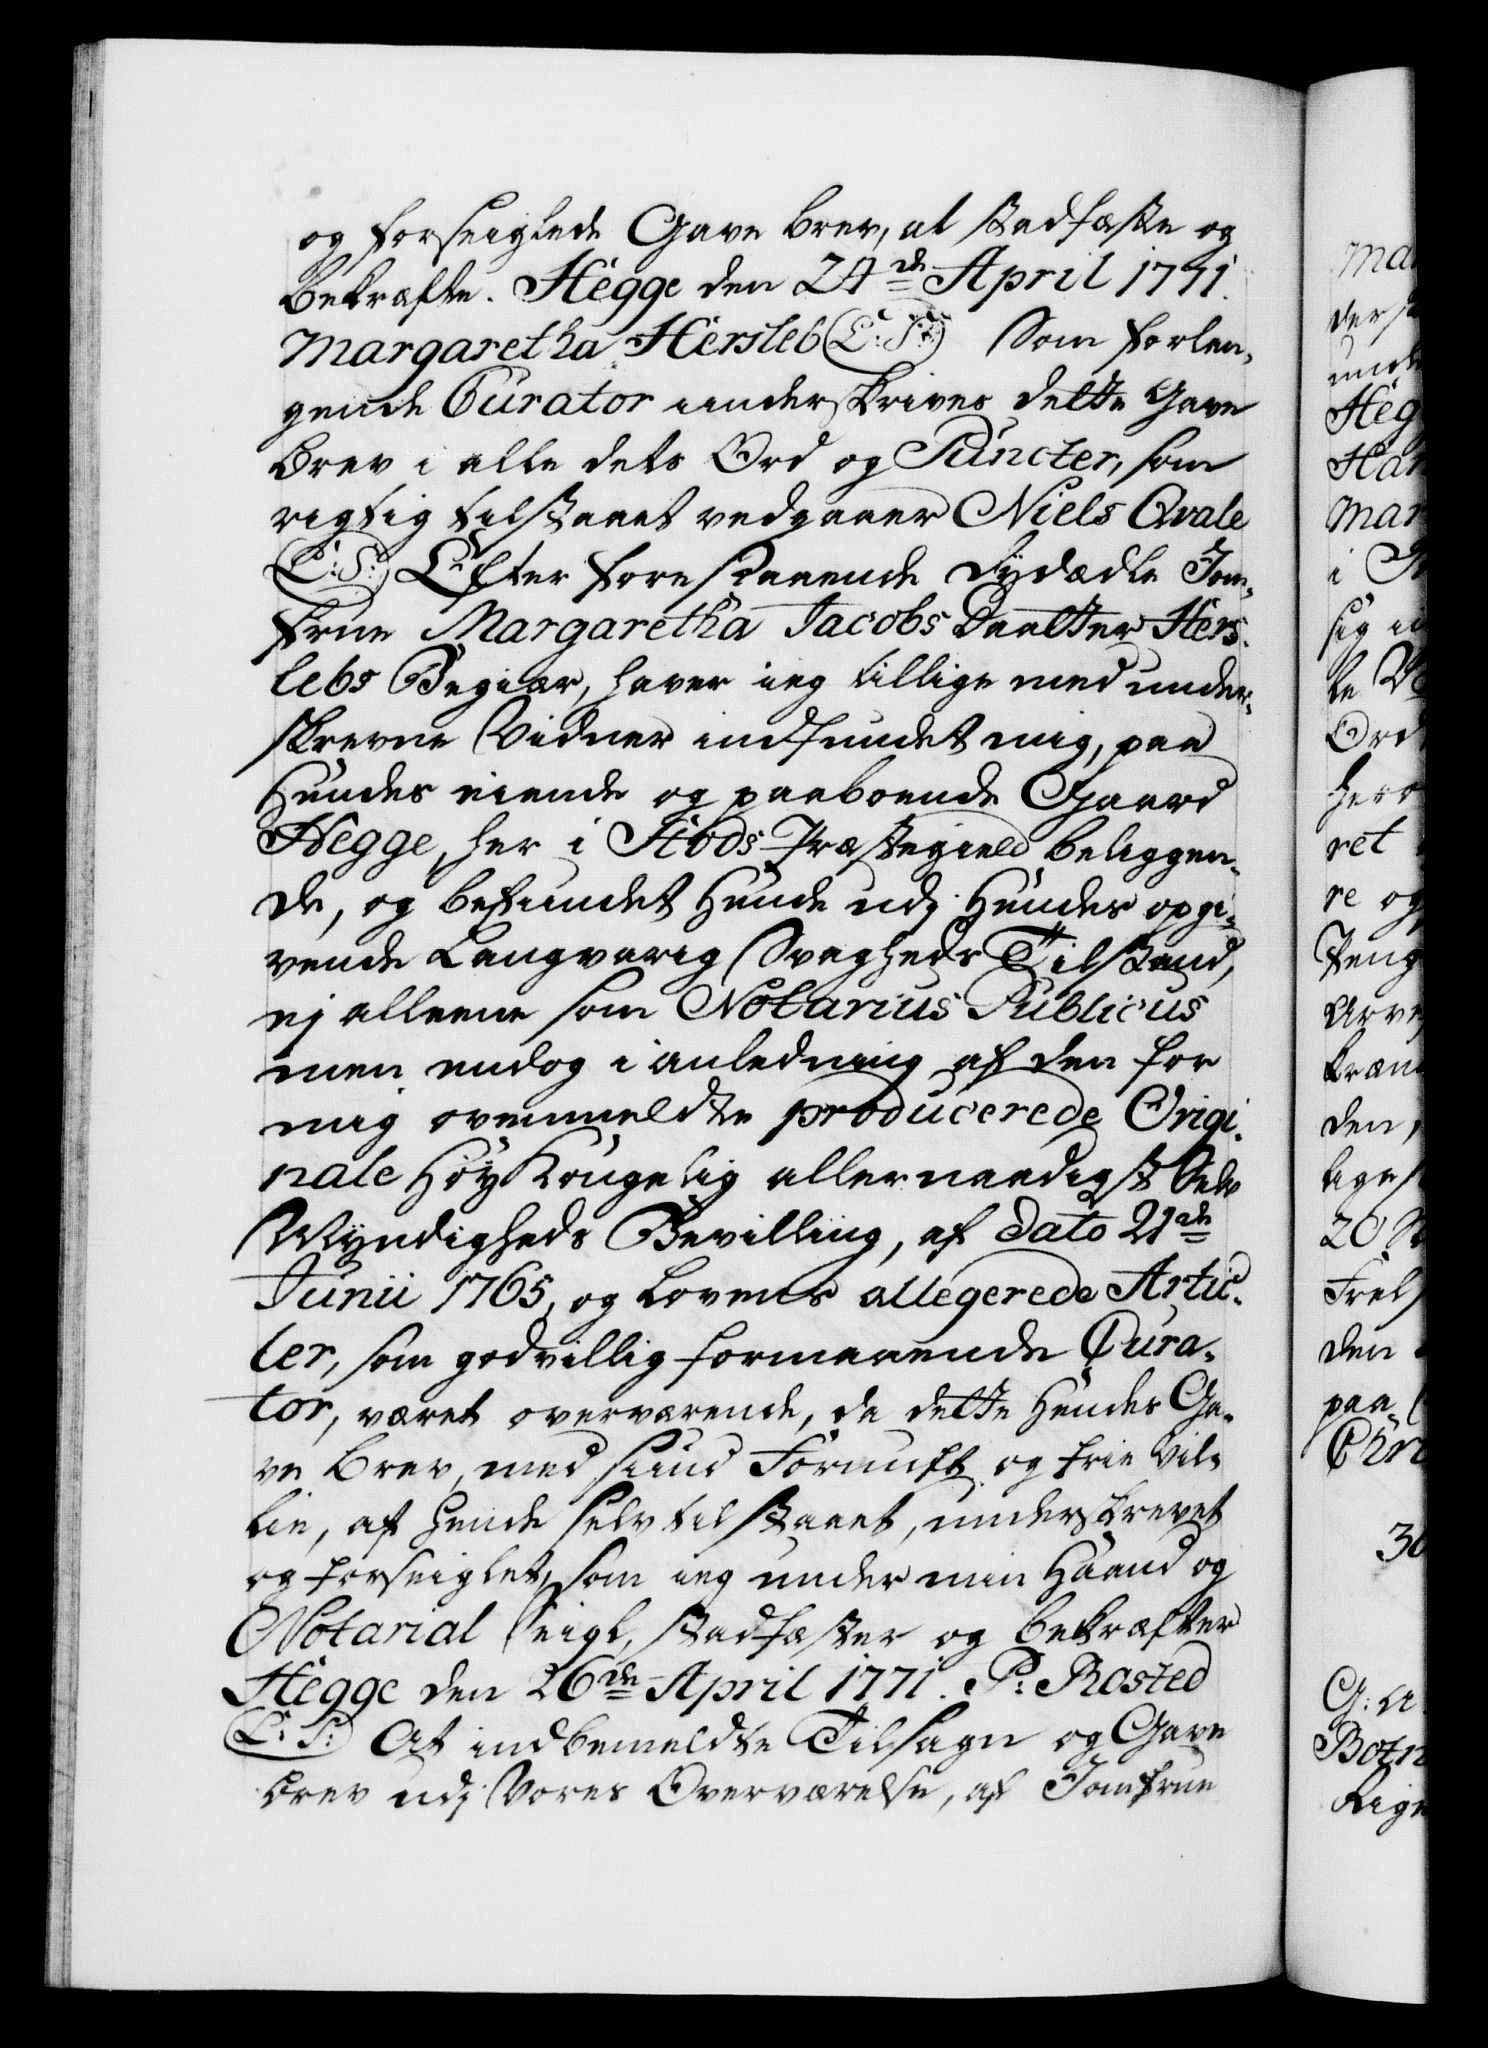 og forseiglede Gave brev, at stadfæste og
bekræfte. Hegge den 24de April 1771.
Margaretha Hersleb (L:S:) Som forlan-
gende Curator underskriver dette Gave
Brev i alle dets Ord og Puncter, som
rigtig tilstaaet vedgaaer Niels Qvale
(L:S:) Efter forestaaende Dydædle Jom-
frue Margaretha Jacobs Daatter Hers-
lebs Begiær, haver ieg tillige med under-
skrevne Vidner indfundet mig, paa
Hendes eiende og paaboende Gaard
Hegge, her i Stods Præstegield beliggen-
de, og befundet Hende udj Hendes opgi-
vende Langvarig Svagheds Tilstand,
ej alleene som Notarius Publicus
men endog i anledning af den for
mig ovenmeldte producerede Origi-
nale Høy Kongelig allernaadigst Selv
Myndigheds Bevilling, af Dato 21de
Junii 1765, og Lovens allegerede Artic-
ler, som godvillig formaaende Cura-
tor, været overværende, da dette Hendes Ga-
ve Brev, med sund Fornuft og frie Vil-
lie, af Hende selv tilstaaet, underskrevet
og forseiglet, som ieg under min Haand og
Notarial Seigl, stadfæster og bekræfter
Hegge den 26de April 1771. P: Rosted
(L:S:) At indbemeldte Tilsagn og Gave
brev udj Vores Overværelse, af Jomfrue